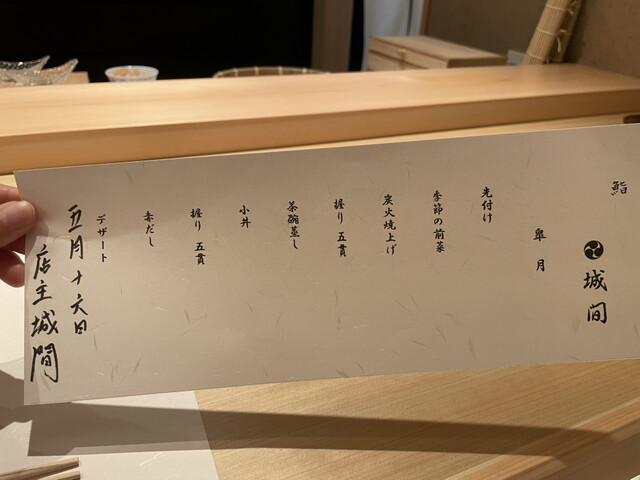 鮨
城間
皐月
先付け
季節の前菜
炭火焼上げ
握り 五貫
茶碗蒸し
小丼
握り 五貫
赤だし
デザート
五月十六日
店主城間